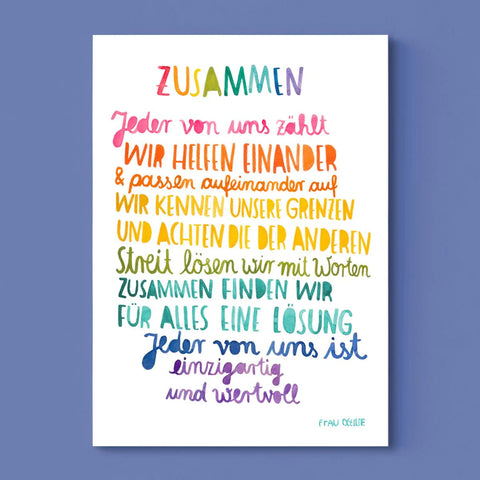 ZUSAMMEN
Jeder von uns zählt
WIR HELFEN EINANDER
& passen aufeinander auf
WIR KENNEN UNSERE GRENZEN
UND ACHTEN DIE DER ANDEREN
Streit lösen wir mit Worten
ZUSAMMEN FINDEN WIR
FÜR ALLES EINE LÖSUNG
Jeder von uns ist
einzigartig
und wertvoll
FRAU